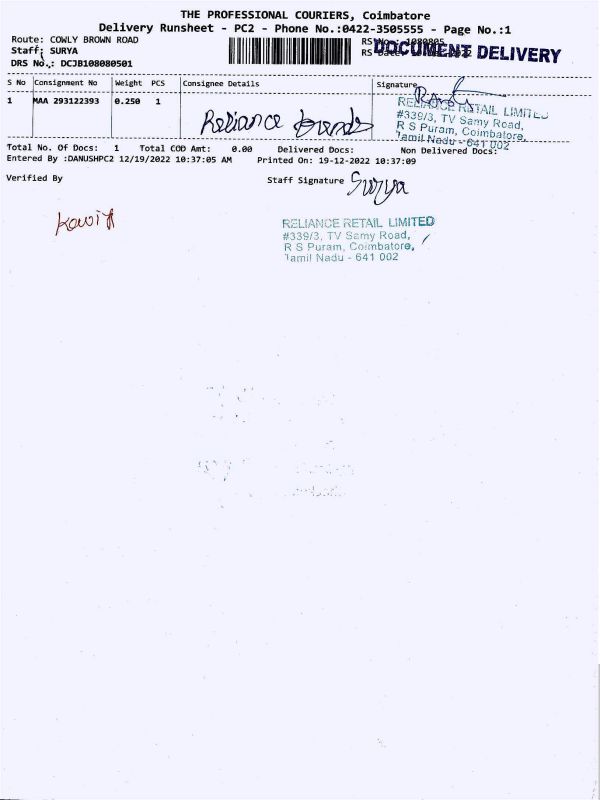 THE PROFESSIONAL COURIERS, Coimbatore
Delivery Runsheet - PC2 - Phone No.:0422-3505555 - Page No.:1
Route: COWLY BROWN ROAD
RS No.: 1080805
DOCUMENT DELIVERY
Staff: SURYA
DRS No.: DCJB108080501
S No Consignment No Weight PCS Consignee Details Signature
1 MAA 293122393 0.250 1 Reliance
RELIANCE RETAIL LIMITED
#339/3, TV Samy Road,
R S Puram, Coimbatore,
Tamil Nadu - 641 002
Total No. Of Docs: 1 Total COD Amt: 0.00 Delivered Docs: Non Delivered Docs:
Entered By :DANUSHPC2 12/19/2022 10:37:05 AM Printed On: 19-12-2022 10:37:09
Verified By Staff Signature Surya
RELIANCE RETAIL LIMITED
#339/3, TV Samy Road,
R S Puram, Coimbatore,
Tamil Nadu - 641 002